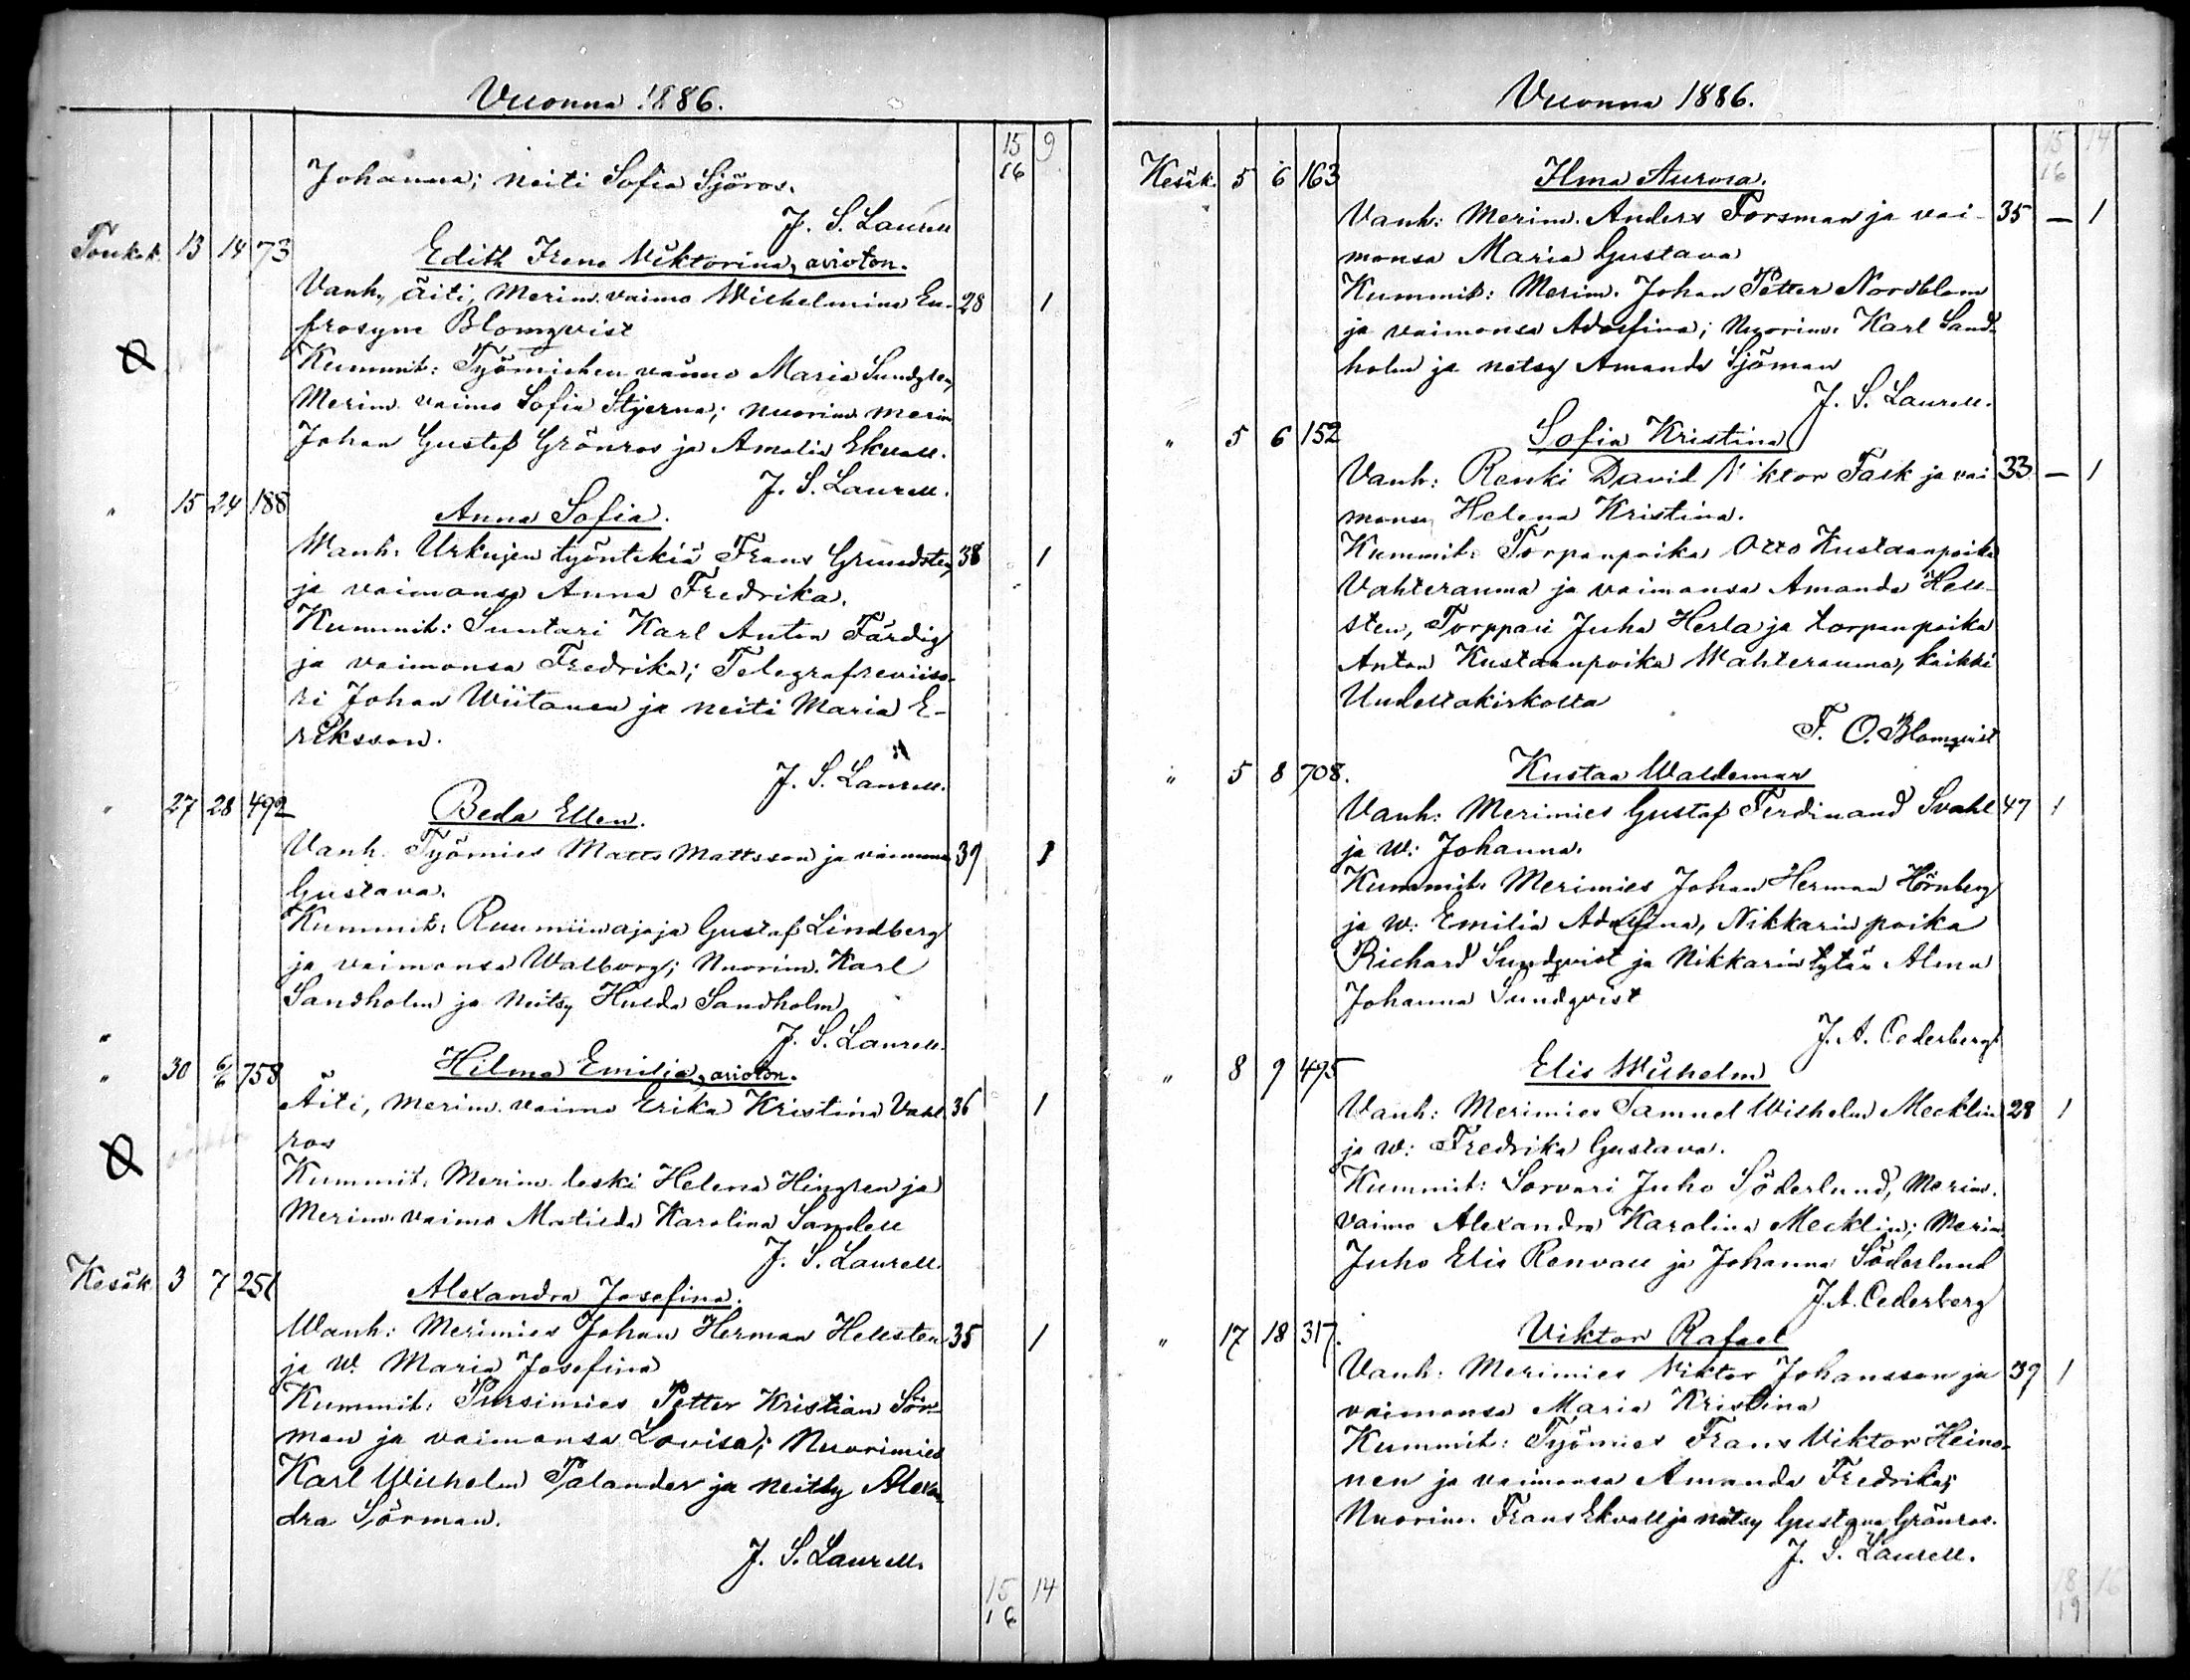 Vuonna 1886.
15 9
16
Johanna; neiti Sofia Sjöros.
J. S. Laurell
Toukok. 13 14 73 Edith Irene Viktorina, avioton.
Vanh, äiti, Merim. vaimo Wilhelmina Eu- 28 1
frosyne Blomqvist
Kummit: Työmiehen vaimo Maria Sundgren,
Merim. vaimo Sofia Stjerna; nuorim. merim
Johan Gustaf Grönros ja Amalia Ekvall.
J. S. Laurell.
" 15 24 188 Anna Sofia.
Wanh: Urkujen työntekiä Frans Grundsten 38 1
ja vaimonsa Anna Fredrika.
Kummit: Suutari Karl Anton Färdig
ja vaimonsa Fredrika; Telegrafreviiso-
ri Johan Wiitanen ja neiti Maria E-
riksson.
J. S. Laurell.
" 27 28 492 Beda Ellen.
Vanh. Työmies Matts Mattsson ja vaimonsa 39 1
Gustava.
Kummit: Ruumiinajaja Gustaf Lindberg
ja vaimonsa Walborg; Nuorim. Karl
Sandholm ja Neitsy Hulda Sandholm
J. S. Laurell.
"
" 30 6/6 758 Hilma Emilia, avioton.
Äiti, Merim. vaimo Erika Kristina Vahl 36 1
ros
Kummit, Merim. leski Helena Hingren ja
Merim. vaimo Matilda Karolina Sandell
J. S. Laurell.
Kesäk 3 7 251 Alexandra Josefina.
Wanh: Merimies Johan Herman Hellsten 35 1
ja W. Maria Josefina
Kummit: Pursimies Petter Kristian Sör-
man ja vaimonsa Lovisa; Nuorimies
Karl Wilhelm Palander ja neitsy Alexan-
dra Sörman.
J. S. Laurell.
15 14
16
Vuonna 1886.
15 14
16
Kesäk. 5 6 163 Ilma Aurora.
Vanh: Merim. Anders Forsman ja vai- 35 — 1
monsa Maria Gustava
Kummit: Merim. Johan Petter Nordblom
ja vaimonsa Adolfina; Nuorim. Karl Sand-
holm ja neitsy Amanda Sjöman
J. S. Laurell.
" 5 6 152 Sofia Kristina
Vanh: Renki David Viktor Falk ja vai 33 — 1
monsa Helena Kristina.
Kummit: Torpanpoika Otto Kustaanpoika
Vahterauma ja vaimonsa Amanda Hell-
sten, Torppari Juha Herla ja torpanpoika
Anton Kustaanpoika Wahterauma, kaikki
Uudeltakirkolta
F. O. Blomqvist
" 5 8 708. Kustaa Waldemar
Vanh: Merimies Gustaf Ferdinand Svahl 47 1
ja W: Johanna.
Kummit: Merimies Johan Herman Hörnberg
ja w: Emilia Adolfina, Nikkarin poika
Richard Sundqvist ja Nikkarin tytär Alma
Johanna Sundqvist
J. A. Cederberg
" 8 9 495 Elis Wilhelm
Vanh: Merimies Samuel Wilhelm Mecklin 28 1
ja w: Fredrika Gustava.
Kummit: Sorvari Juho Söderlund, Merim.
vaimo Alexandra Karolina Mecklin; Merim.
Juho Elis Renvall ja Johanna Söderlund
J. A. Cederberg
" 17 18 317. Viktor Rafael
Vanh: Merimies Viktor Johansson ja 39 1
vaimonsa Maria Kristina
Kummit: Työmies Frans Viktor Heino-
nen ja vaimonsa Amanda Fredrika;
Nuorim. Frans Ekvall ja neitsy Gustava Grönros.
J. S. Laurell.
18 16
19